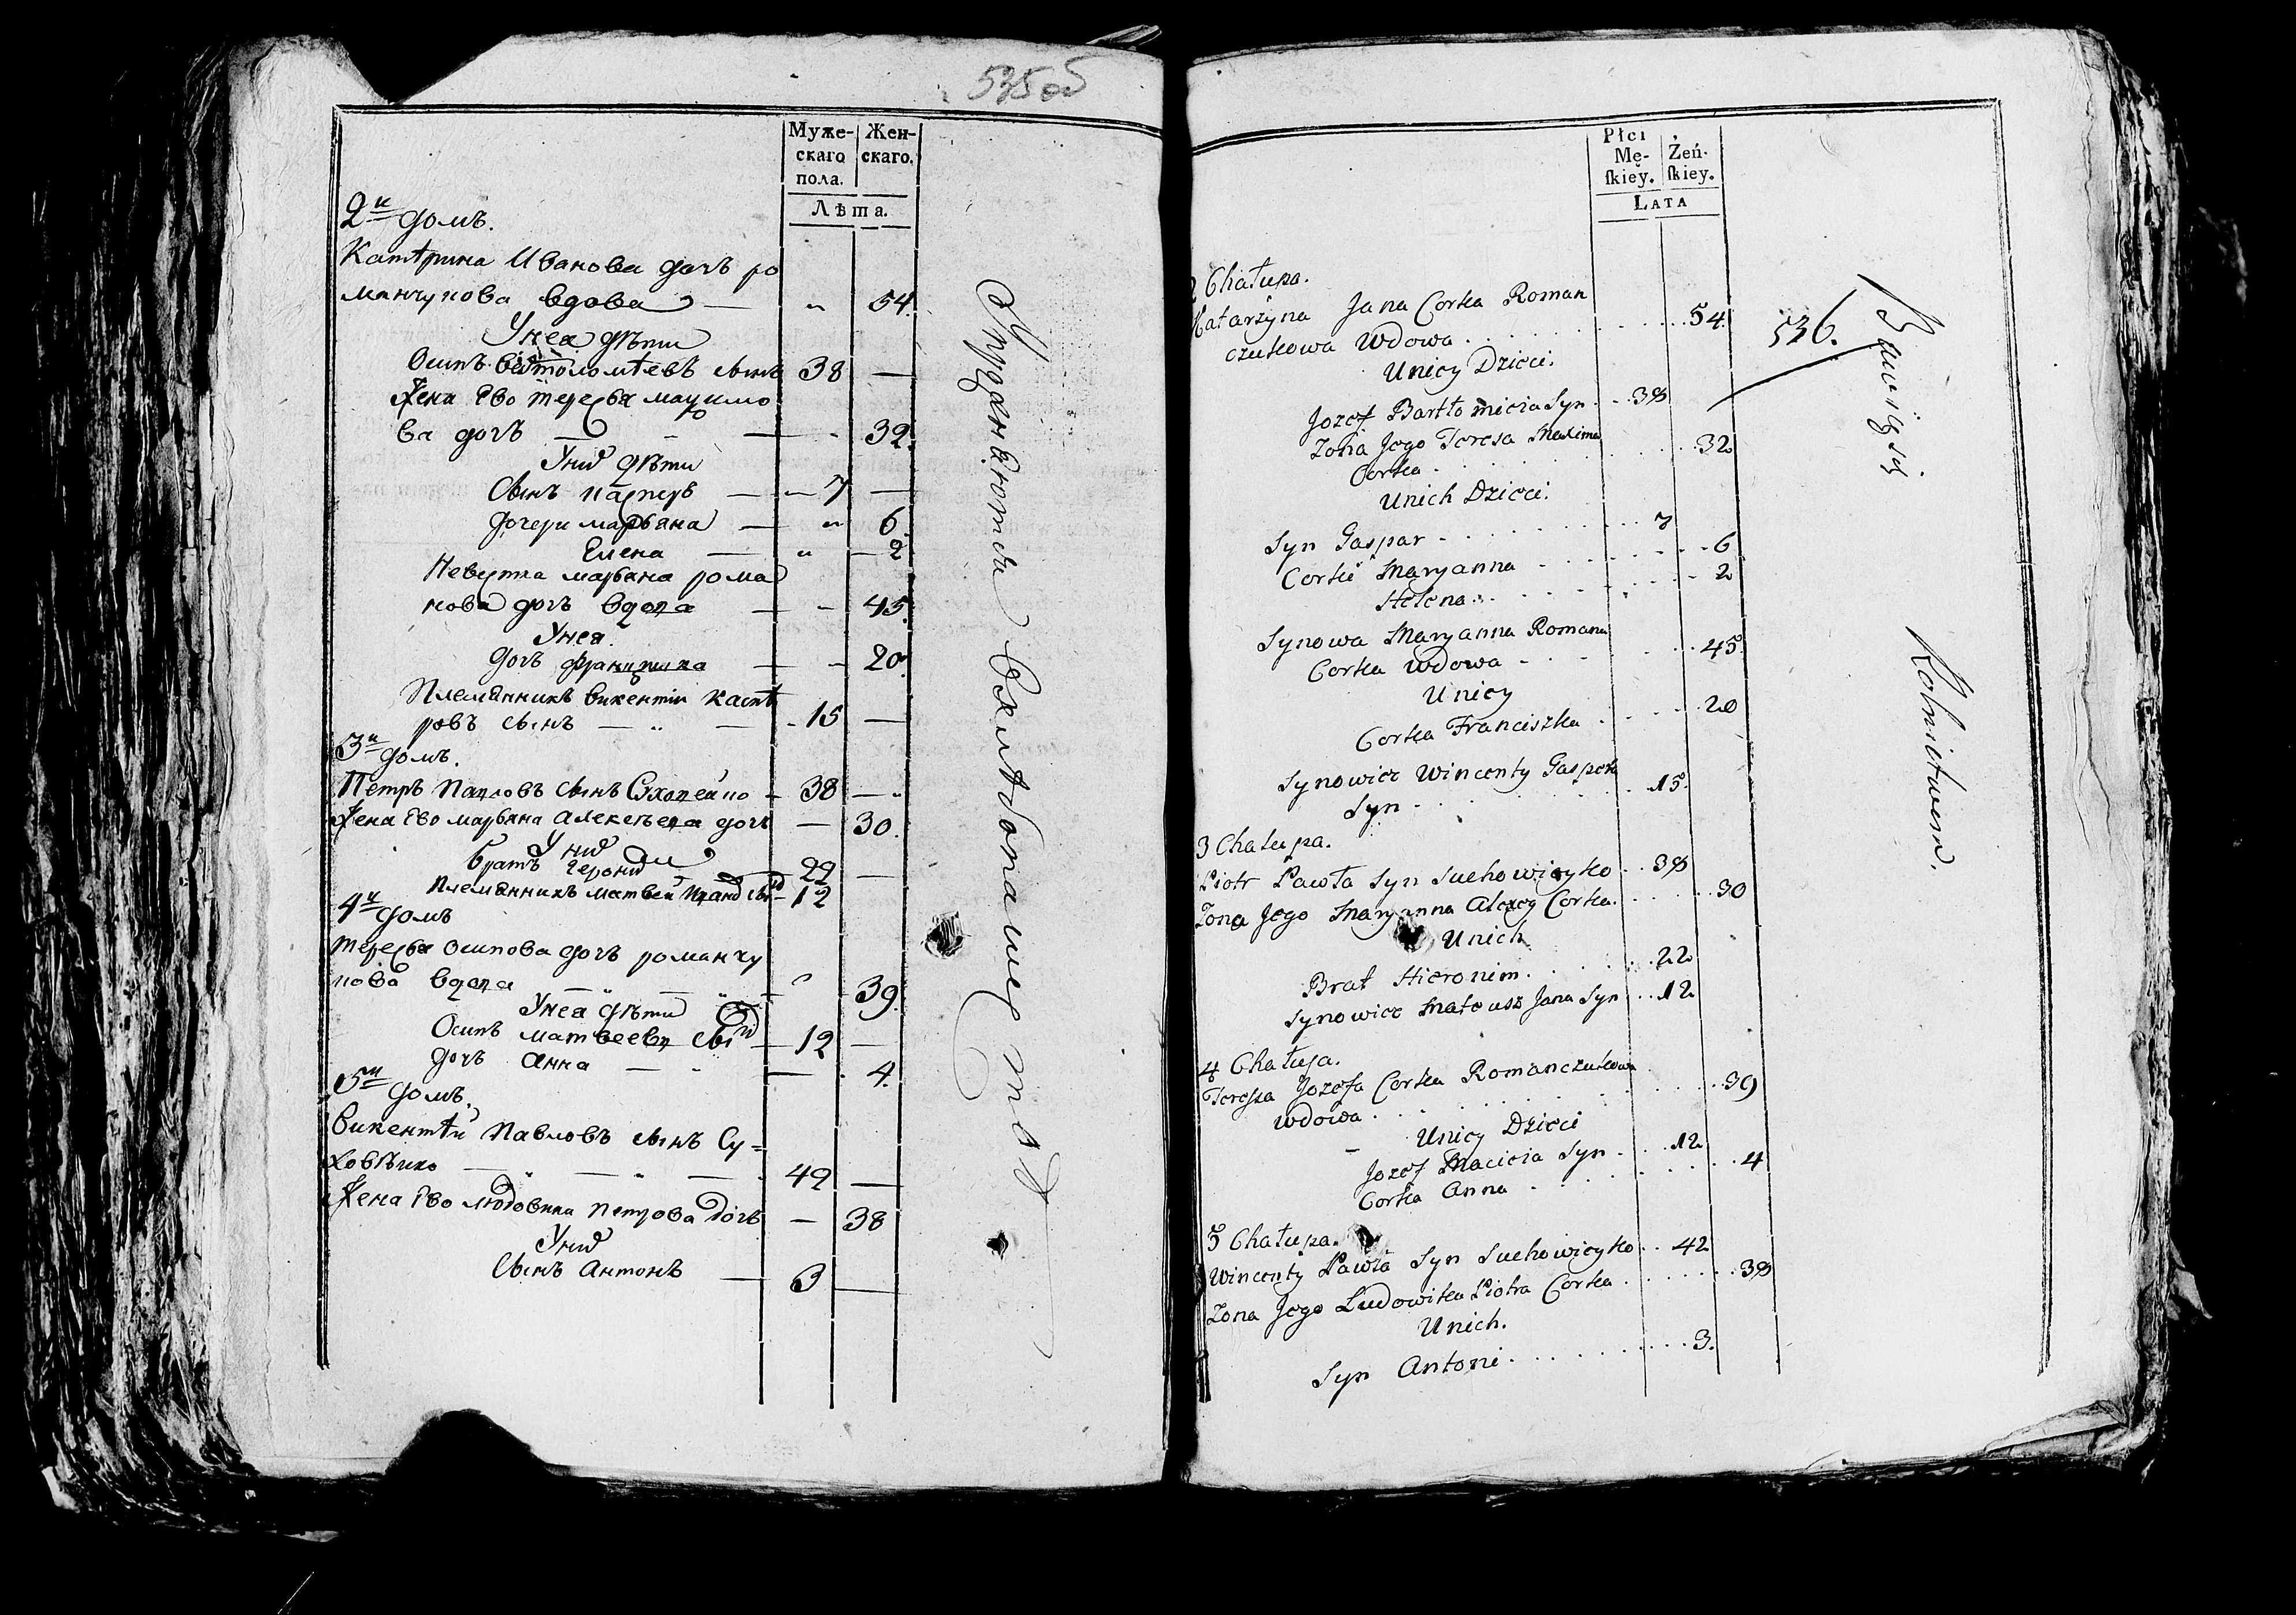 535 об
Муже-
скаго
пола.
Жен-
скаго.
Лѣта.
2й домъ.
Катѣрина Иванова дочъ ро
манчукова вдова — 54
Унея дѣти
Осипъ Бартоломѣевъ сынъ 38 —
Жена Ево тереса мацимо
ва дочъ — 32.
Унид дѣти
Сынъ касперъ — 7 —
Дочери марьяна — 6
Елена — 2
Невестка марьяна рома
нова дочъ вдова — 45.
Унея.
дочъ францишка — 20
Племянникъ викентіи каспѣ
ровъ сынъ — 15 —
3й домъ.
Петръ Павловъ сынъ Суховейко 38 —
Жена Ево марьяна алексѣева дочъ — 30.
Унид
братъ героним 22 —
Племянникъ матвеи Иванов сынъ 12
4й домъ
тереса осипова дочъ романчу
кова вдова — 39.
Унея дѣти
Осипъ матвеевъ сынъ 12 —
дочъ анна — 4.
5й домъ.
Викентѣи Павловъ сынъ Су=
ховѣико — 42 —
Жена Ево людовика петрова дочъ — 38
Унид
Сынъ антонъ — 3 —
Płci
Mę-
ſkiey.
Żeń-
ſkiey.
LATA
2 Chałupa.
Katarzyna Jana Corka Roman
czukowa Wdowa . . . 54
Unicy Dzieci.
Jozef Bartłomieia Syn . . 38
Zona Jego Teresa Maxima
Corka . . . 32
Unich Dzieci.
Syn Gaspar . . . 7
Corki Maryanna . . . 6
Helena . . . 2
Synowa Maryanna Romana
Corka Wdowa . . . 45.
Unicy
Corka Franciszka . . . 20
Synowiec Wincenty Gaspra
Syn . . . 15.
3 Chałupa.
Piotr Pawła Syn Suchowieyko . . 38
Zona Jego Maryanna Alexey Corka . . . 30
Unich
Brat Hieronim . . . 22
Synowiec Mateusz Jana Syn . . 12
4 Chałupa.
Teressa Jozefa Corka Romanczukowa
Wdowa . . . 39
Unicy Dzieci
Jozef Macieia Syn . . 12
Corka Anna . . . 4
5 Chałupa.
Wincenty Pawła Syn Suchowieyko . . 42
Zona Jego Ludowika Piotra Corka . . . 38
Unich.
Syn Antoni . . . 3.
536.
Rolnictwem.